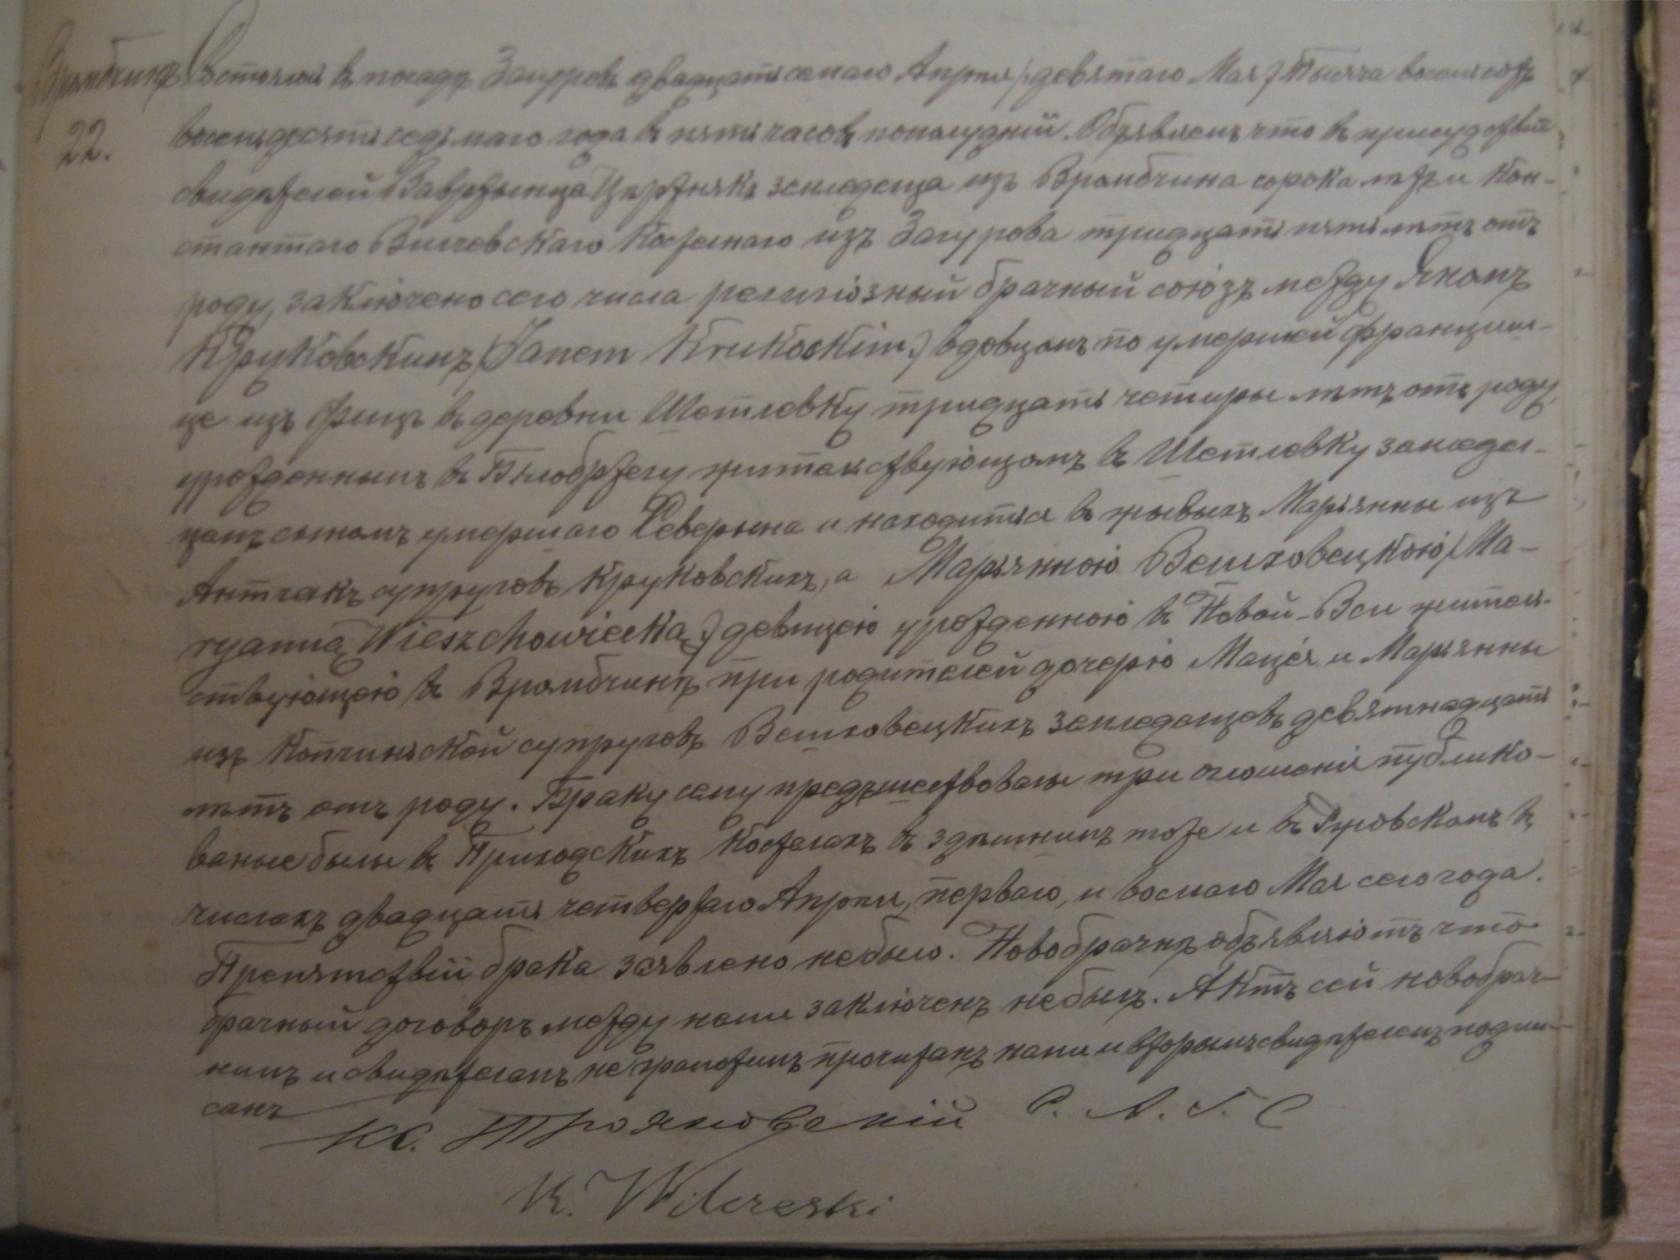 Вромбчинъ
22.
Состоялся въ посадѣ Загуровѣ двадцать седьмаго Апрѣля (девятаго Мая) тысяча восемьсотъ
восемьдесятъ седьмаго года въ пять часовъ пополудній. Объявляемъ что въ присудствіи
свидѣтелей Вавржынца земледѣльца изъ Вромбчина сорока лѣтъ и Кон-
стантаго Вильчевскаго Костельнаго изъ Загурова тридцать пять лѣтъ отъ
роду, заключено сего числа религіозный брачный союзъ между Яномъ
Круковскимъ (Janem Krukoskim) вдовцомъ по умершей Францишк-
це изъ въ деревни Шетлевку тридцать четыры лѣтъ отъ роду,
урожденнымъ въ Бялобржегу жительствующомъ въ Шетлевку земледѣл-
цомъ сыномъ умершаго Северына и находится въ жывыхъ Марянны изъ
Антчакъ супруговъ Круковскихъ, а Марянною Вешховецкою (Ma-
ryanną Wieszchowiecką) девицею урожденною въ Новой-Вси жител-
ствующею въ Вромбчинѣ при родителей дочерію Мацѣя и Марянны
изъ Копчинской супруговъ Вешховецкихъ земледѣлцевъ девятнадцать
лѣтъ отъ роду. Браку сему предшествовалы три оглашенія публико-
ваные былы въ Приходскихъ Костелахъ въ здѣшнимъ тоже и въ въ
числахъ двадцать четвертаго Апрѣля, перваго, и восмаго Мая сего года.
Препятствіи брака заявлено небыло. Новобрачнѣ объявляютъ что
брачный договоръ между ними заключенъ небылъ. Актъ сей новобрач-
нимъ и свидѣтелямъ неграмотнымъ прочитанъ нами и вторымъ свидѣтелемъ подпи-
санъ
Кс. Трояновскій С. А. Г. С
K. Wilczeski